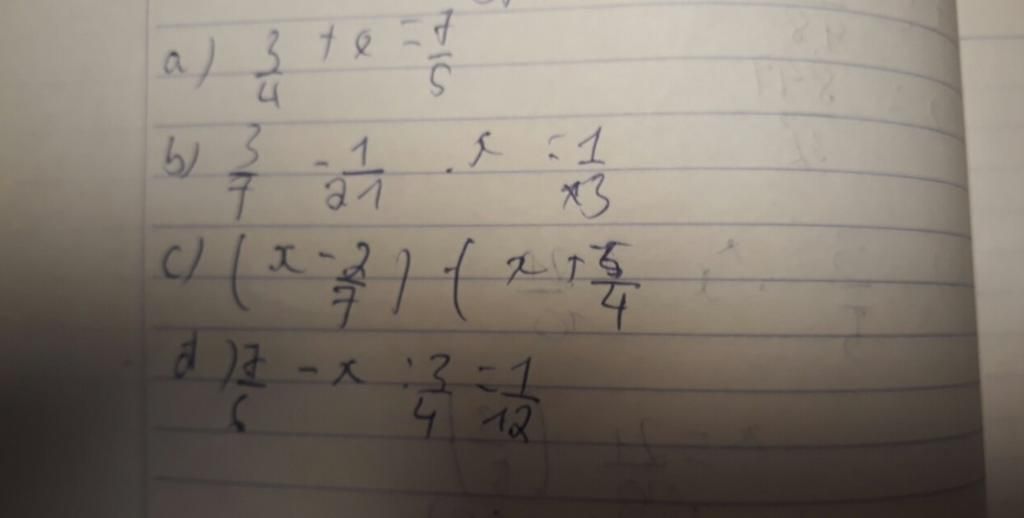 a) 3/4 + x = 7/5
b) 3/7 - 1/21 . x = 1/3
c) (x - 2/7) - (x + 5/4
d) 7/6 - x : 3/4 = 1/12